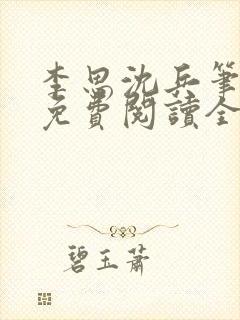 李思沈兵筆
免費閱讀全
碧玉蕭